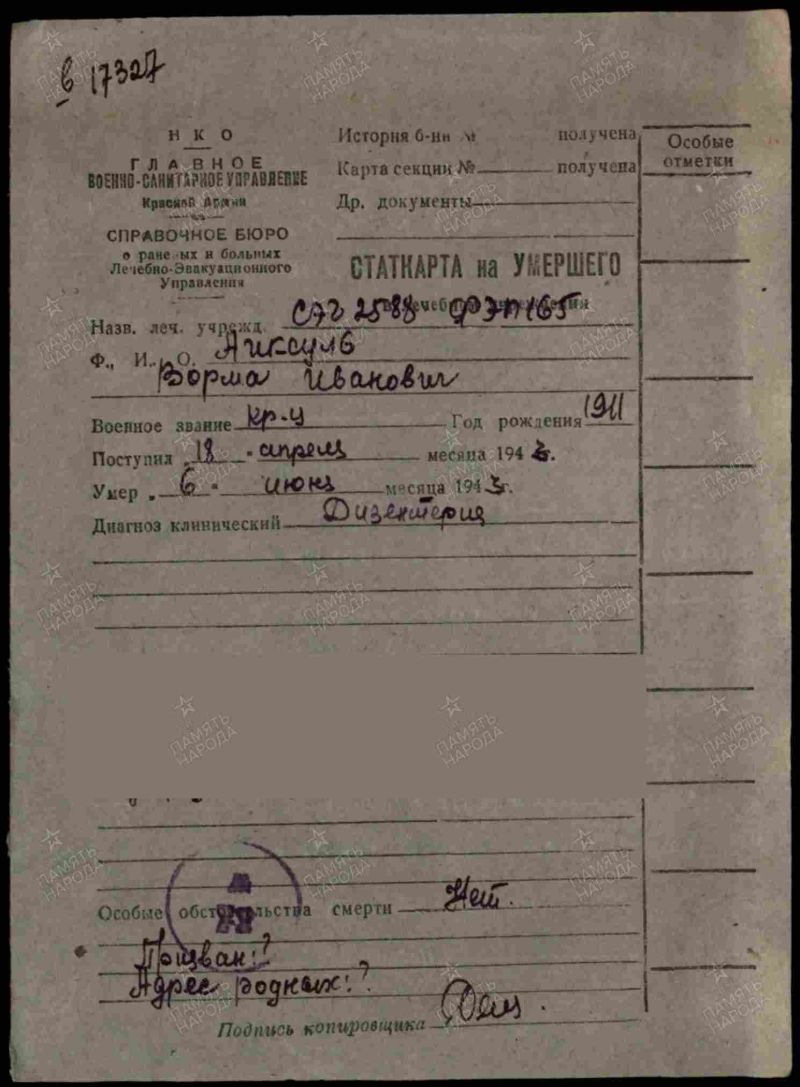 в 17327
НКО
ГЛАВНОЕ
ВОЕННО-САНИТАРНОЕ УПРАВЛЕНИЕ
Красной Армии
СПРАВОЧНОЕ БЮРО
о раненых и больных
Лечебно-Эвакуационного
Управления
История б-ни № получена
Карта секции № получена
Др. документы
Особые
отметки
СТАТКАРТА на УМЕРШЕГО
Назв. леч. учрежд. СЭГ 2588 ФЭП 165
Ф., И., О. Аиксуль
Ворма Иванович
Военное звание кр-ц Год рождения 1911
Поступил „18" апреля месяца 1943 г.
Умер „6" июня месяца 1943 г.
Диагноз клинический Дизентерия
Особые обстоятельства смерти Нет.
Призван:?
Адрес родных:?
Подпись копировщика
ПАМЯТЬ
НАРОДА